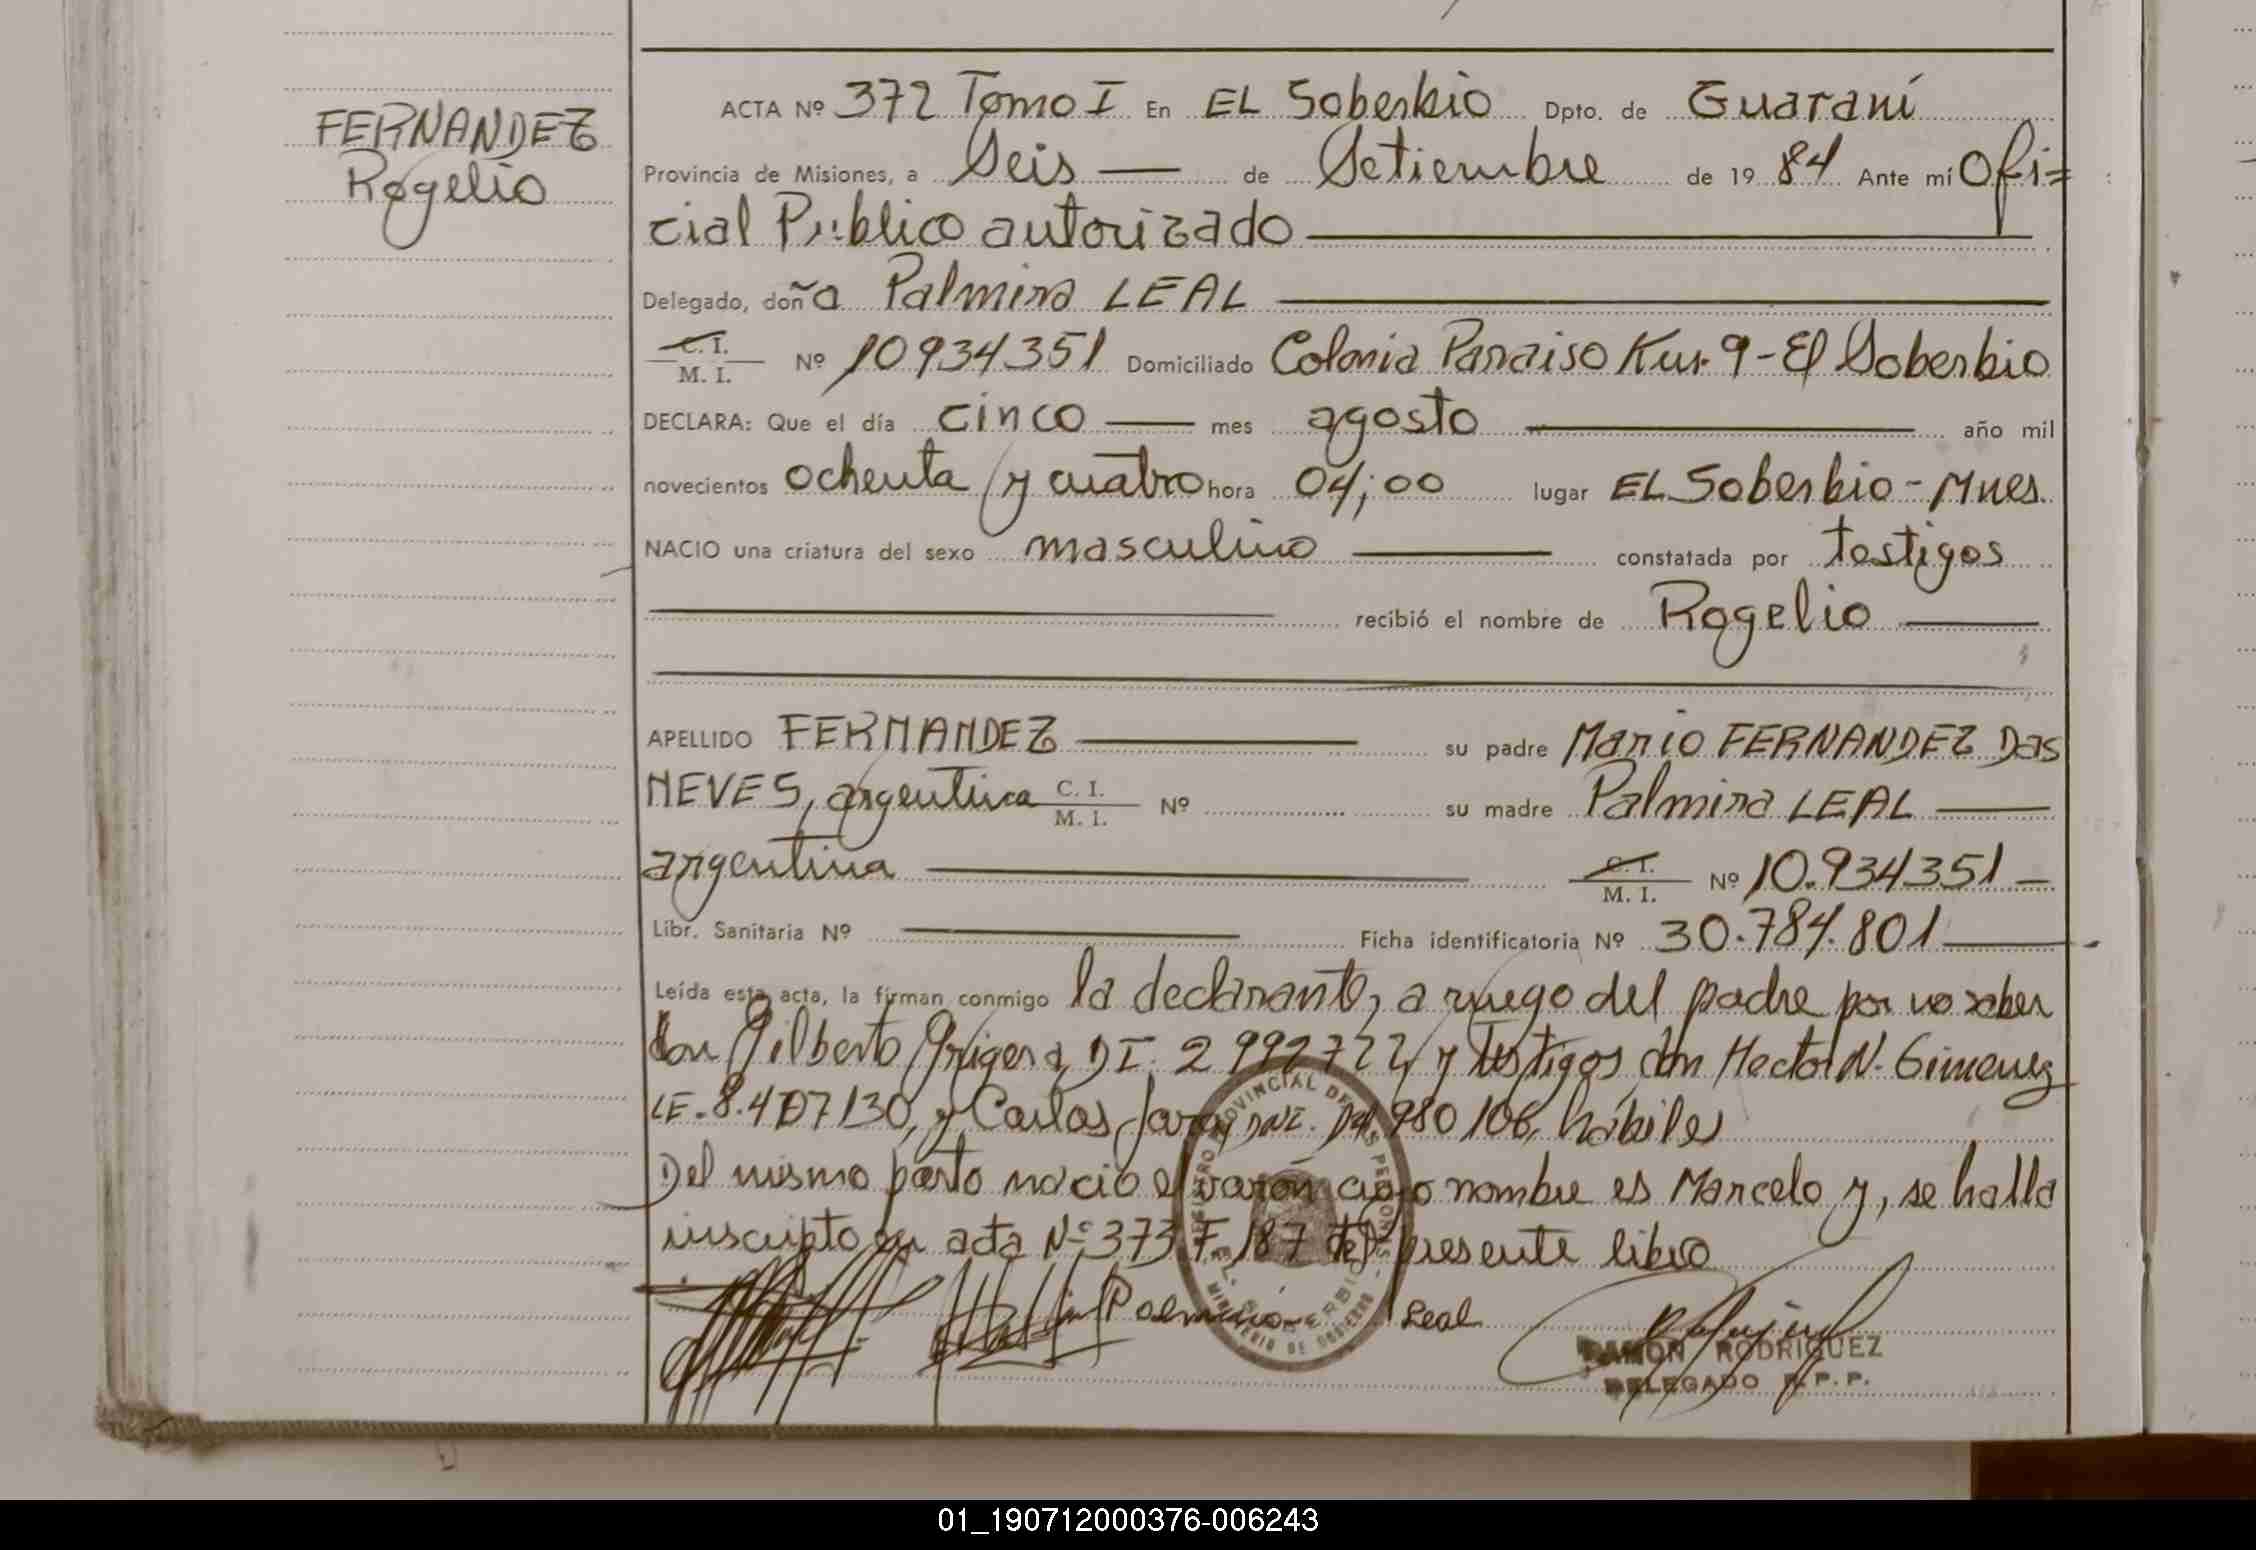 FERNANDEZ
Rogelio
ACTA Nº 372 Tomo I En EL Soberbio Dpto. de Guaraní
Provincia de Misiones, a Seis de Setiembre de 19 84 Ante mí Ofi=
cial Publico autorizado
Delegado, doña Palmira LEAL
C. I.
M. I. Nº 10934351 Domiciliado Colonia Paraiso Km. 9 - El Soberbio
DECLARA: Que el día cinco mes agosto año mil
novecientos ochenta y cuatro hora 04;00 lugar EL Soberbio - Mnes.
NACIO una criatura del sexo masculino constatada por testigos
recibió el nombre de Rogelio
APELLIDO FERNANDEZ su padre Mario FERNANDEZ Das
NEVES, argentina C. I. M. I. Nº su madre Palmira LEAL
argentina C. I. M. I. Nº 10.934351
Libr. Sanitaria Nº Ficha identificatoria Nº 30.784.801
Leída esta acta, la firman conmigo la declarante, a ruego del padre por no saber
don Gilberto Grigera DI. 2992722 y testigos don Hector N. Gimenez
LE. 8.407130, y Carlos Jara, DNI. 980106, hábiles
Del mismo parto nacio el varón cuyo nombre es Marcelo y, se halla
inscripto en acta Nº 373 F 187 del presente libro
Palmira Leal
REGISTRO PROVINCIAL DE LAS PERSONAS
EL SOBERBIO
MINISTERIO DE GOBIERNO
RAMON RODRIGUEZ
DELEGADO R.P.P.
01_190712000376-006243